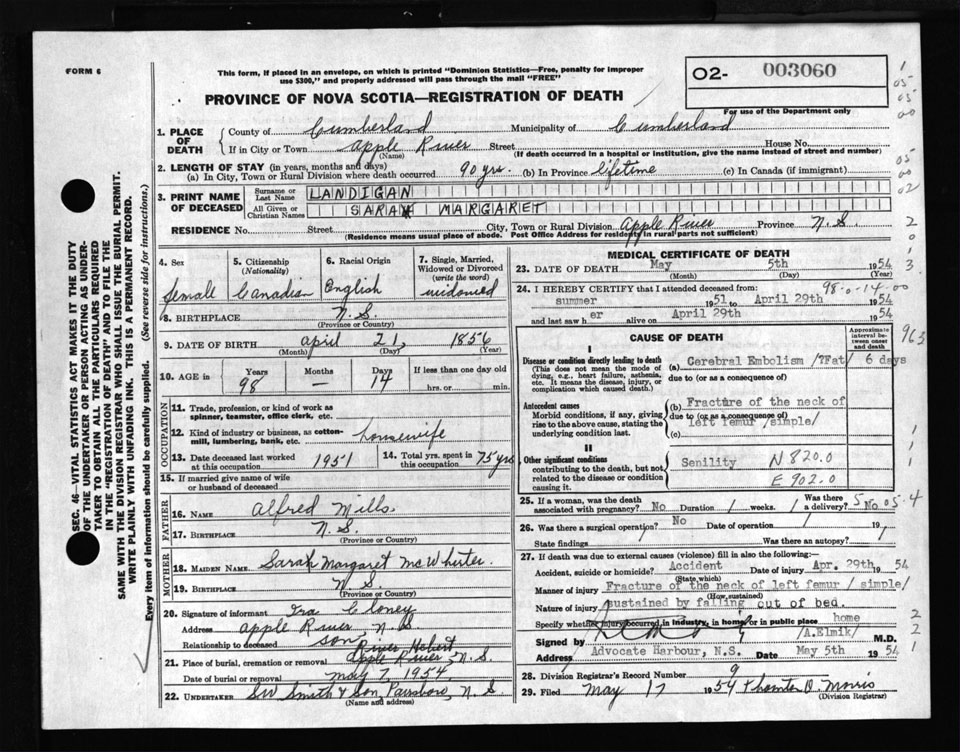 FORM 6
This form, if placed in an envelope, on which is printed "Dominion Statistics—Free, penalty for improper
use $300," and properly addressed will pass through the mail "FREE"
O2- 003060
For use of the Department only
PROVINCE OF NOVA SCOTIA—REGISTRATION OF DEATH
1. PLACE OF DEATH
County of Cumberland Municipality of Cumberland
If in City or Town Apple River Street House No.
(Name) (If death occurred in a hospital or institution, give the name instead of street and number)
2. LENGTH OF STAY (in years, months and days)
(a) In City, Town or Rural Division where death occurred 90 yrs. (b) In Province lifetime (c) In Canada (if immigrant)
3. PRINT NAME OF DECEASED
Surname or Last Name LANDIGAN
All Given or Christian Names SARAH MARGARET
RESIDENCE No. Street City, Town or Rural Division Apple River Province N.S.
(Residence means usual place of abode. Post Office Address for residents in rural parts not sufficient)
4. Sex female
5. Citizenship (Nationality) Canadian
6. Racial Origin English
7. Single, Married, Widowed or Divorced (write the word) widowed
8. BIRTHPLACE N.S.
(Province or Country)
9. DATE OF BIRTH April 21, 1856
(Month) (Day) (Year)
10. AGE in Years 98 Months — Days 14 If less than one day old hrs. or min.
OCCUPATION
11. Trade, profession, or kind of work as
spinner, teamster, office clerk, etc.
12. Kind of industry or business, as cotton-
mill, lumbering, bank, etc. housewife
13. Date deceased last worked at this occupation 1951
14. Total yrs. spent in this occupation 75 yrs
15. If married give name of wife
or husband of deceased
FATHER
16. NAME Alfred Mills
17. BIRTHPLACE N.S.
(Province or Country)
MOTHER
18. MAIDEN NAME Sarah Margaret McWhirter.
19. BIRTHPLACE N.S.
(Province or Country)
20. Signature of informant Ira Cloney
Address Apple River, N.S.
Relationship to deceased son
River, Hebert
21. Place of burial, cremation or removal Apple River, N.S.
Date of burial or removal May 7, 1954.
22. UNDERTAKER SW Smith & Son, Parrsboro, N.S.
(Name and address)
MEDICAL CERTIFICATE OF DEATH
23. DATE OF DEATH May 5th 1954
(Month) (Day) (Year)
98-0-14-00
24. I HEREBY CERTIFY that I attended deceased from:
summer 1951 to April 29th 1954
and last saw her alive on April 29th 1954
CAUSE OF DEATH
Approximate interval between onset and death
I
Disease or condition directly leading to death
(This does not mean the mode of dying, e.g., heart failure, asthenia, etc. It means the disease, injury, or complication which caused death.)
(a) Cerebral Embolism /?Fat/ 6 days
due to (or as a consequence of)
Antecedent causes
Morbid conditions, if any, giving rise to the above cause, stating the underlying condition last.
(b) Fracture of the neck of
due to (or as a consequence of)
left femur /simple/
(c)
II
Other significant conditions
contributing to the death, but not related to the disease or condition causing it.
Senility N 820.0
E 902.0
25. If a woman, was the death associated with pregnancy? No Duration / weeks. Was there a delivery? No
26. Was there a surgical operation? No Date of operation / 19
State findings Was there an autopsy?
27. If death was due to external causes (violence) fill in also the following:—
Accident, suicide or homicide? Accident Date of injury Apr. 29th 1954
(State which)
Manner of injury Fracture of the neck of left femur /simple/
(How sustained)
Nature of injury sustained by falling out of bed.
Specify whether injury occurred in industry, in home, or in public place home
Signed by /A.Elmik/ M.D.
Address Advocate Harbour, N.S. Date May 5th 1954
28. Division Registrar's Record Number 9
29. Filed May 17 1954 Thornton O. Morris
(Division Registrar)
SEC. 46—VITAL STATISTICS ACT MAKES IT THE DUTY
OF THE UNDERTAKER OR PERSON ACTING AS UNDER-
TAKER TO OBTAIN ALL THE PARTICULARS REQUIRED
IN THE "REGISTRATION OF DEATH" AND TO FILE THE
SAME WITH THE DIVISION REGISTRAR WHO SHALL ISSUE THE BURIAL PERMIT.
WRITE PLAINLY WITH UNFADING INK. THIS IS A PERMANENT RECORD.
Every item of information should be carefully supplied. (See reverse side for instructions.)